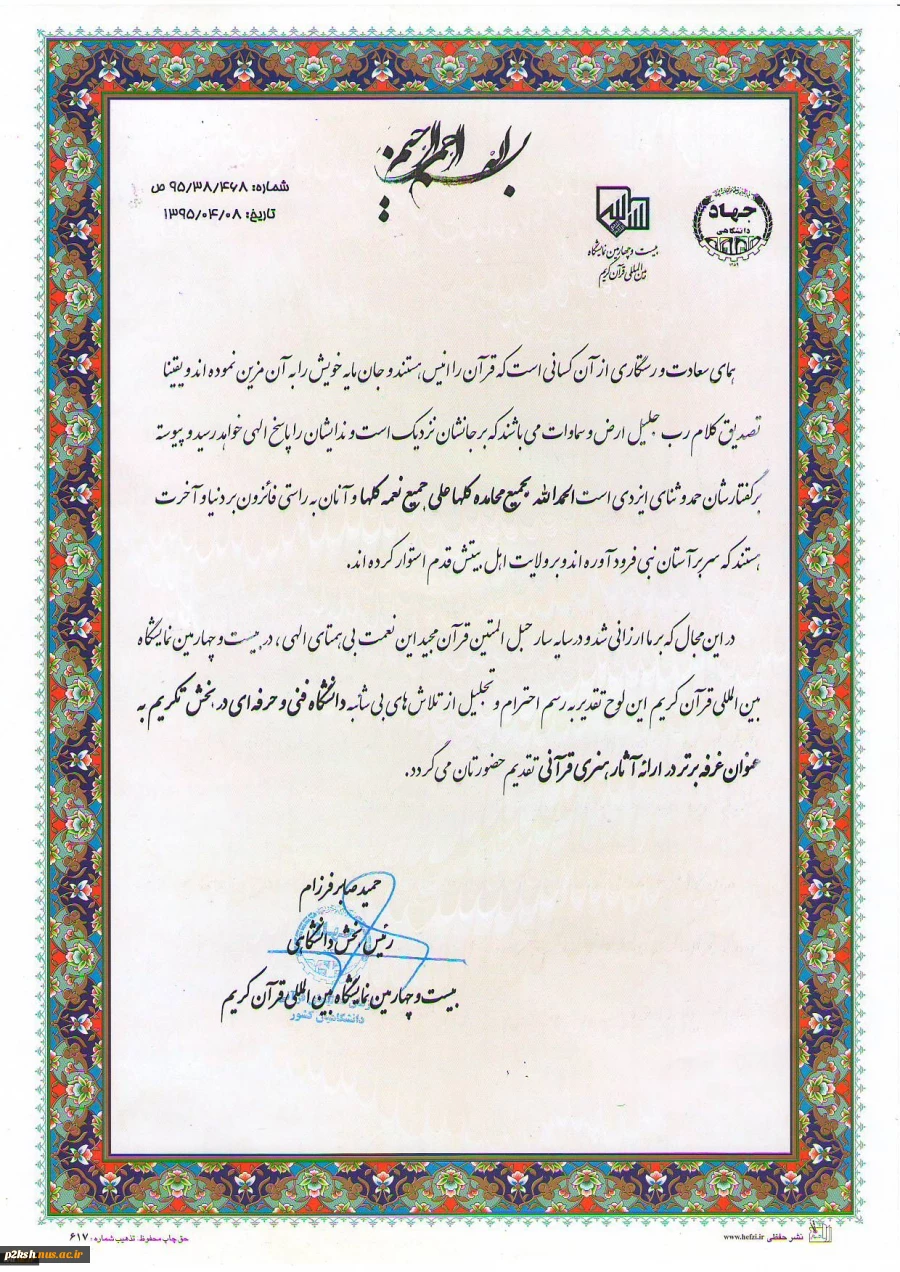 بسم الله الرحمن الرحیم
شماره: ۹۵/۳۸/۴۶۸ ص
تاریخ: ۱۳۹۵/۰۴/۰۸
جهاد
دانشگاهی
بیست و چهارمین نمایشگاه
بین المللی قرآن کریم
همای سعادت و رستگاری از آن کسانی است که قرآن را انیس هستند و جان مایه خویش را به آن مزین نموده اند و یقینا
تصدیق کلام رب جلیل ارض و سماوات می باشند که بر جانشان نزدیک است و ندایشان را پاسخ الهی خواهد رسید و پیوسته
بر گفتارشان حمد و ثنای ایزدی است الحمدالله بجمیع محامده کلها علی جمیع نعمه کلها و آنان به راستی فائزون بر دنیا و آخرت
هستند که سر بر آستان نبی فرود آوره اند و بر ولایت اهل بیتش قدم استوار کرده اند.
در این مجال که بر ما ارزانی شد و در سایه سار حبل المتین قرآن مجید این نعمت بی همتای الهی، در بیست و چهارمین نمایشگاه
بین المللی قرآن کریم این لوح تقدیر به رسم احترام و تجلیل از تلاش های بی شائبه دانشگاه فنی و حرفه ای در بخش تکریم به
عنوان غرفه برتر در ارائه آثار هنری قرآنی تقدیم حضورتان می گردد.
حمید صابر فرزام
رئیس بخش دانشگاهی
بیست و چهارمین نمایشگاه بین المللی قرآن کریم
دانشگاهیان کشور
حق چاپ محفوظ. تذهیب شماره: ۶۱۷
نشر حفظی www.hefzi.ir
p2ksh.nus.ac.ir